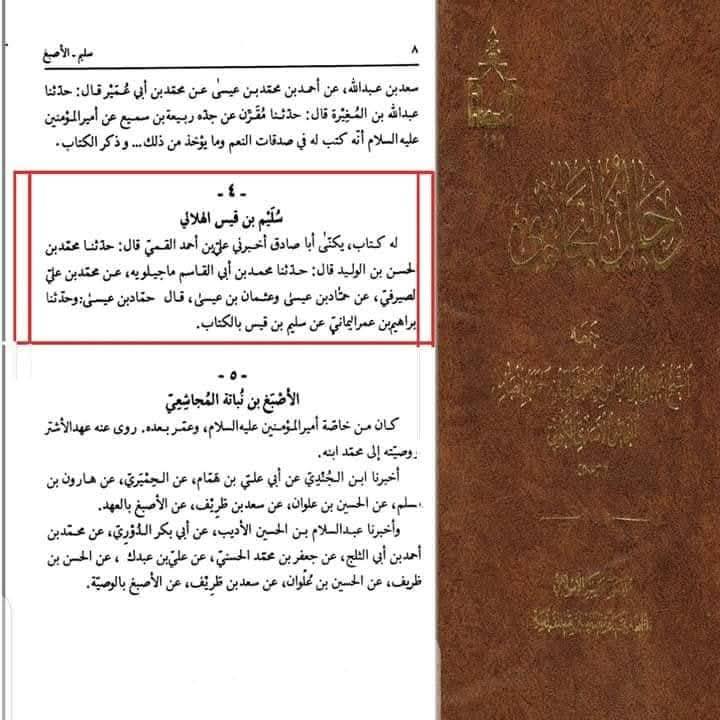 ٨
سليم ـ الأصبغ
سعد بن عبدالله، عن أحمد بن محمد بن عيسىٰ عن محمد بن أبي عُمَيْر قال: حدّثنا
عبدالله بن المُغِيْرة قال: حدّثنا مُقَرِّن عن جدّه ربيعة بن سميع عن أميرالمؤمنين
عليه السلام أنّه كتب له في صدقات النعم وما يؤخذ من ذلك... و ذكر الكتاب.
- ٤ -
سُلَيْم بن قيس الهلالي
له كتاب، يكنّىٰ أبا صادق أخبرني علي بن أحمد القمي قال: حدّثنا محمّد بن
لحسن بن الوليد قال: حدّثنا محمد بن أبي القاسم ماجيلويه، عن محمّد بن علي
لصيرفيّ، عن حمّاد بن عيسىٰ وعثمان بن عيسىٰ، قال حمّاد بن عيسىٰ: وحدّثنا
براهيم بن عمر اليمانيّ عن سليم بن قيس بالكتاب.
- ٥ -
الأصْبَغ بن نُباتة المُجاشِعِيّ
كان من خاصّة أميرالمؤمنين عليه السلام، وعمّر بعده. روى عنه عهد الأشتر
روصيّته إلى محمّد ابنه.
أخبرنا ابن الجُنْدِيّ عن أبي عليّ بن هَمّام، عن الحِمْيَري، عن هارون بن
سلم، عن الحسين بن علوان، عن سعد بن ظَرِيْف، عن الأصبغ بالعهد.
وأخبرنا عبدالسلام بن الحسين الأديب، عن أبي بكر الدُوْرِيّ، عن محمّد بن
أحمد بن أبي الثلج، عن جعفر بن محمّد الحسنيّ، عن عليّ بن عبدك ، عن الحسن بن
ظريف، عن الحسين بن عُلْوان، عن سعد بن ظَرِيْف، عن الأصبغ بالوصيّة.
رجال النجاشي